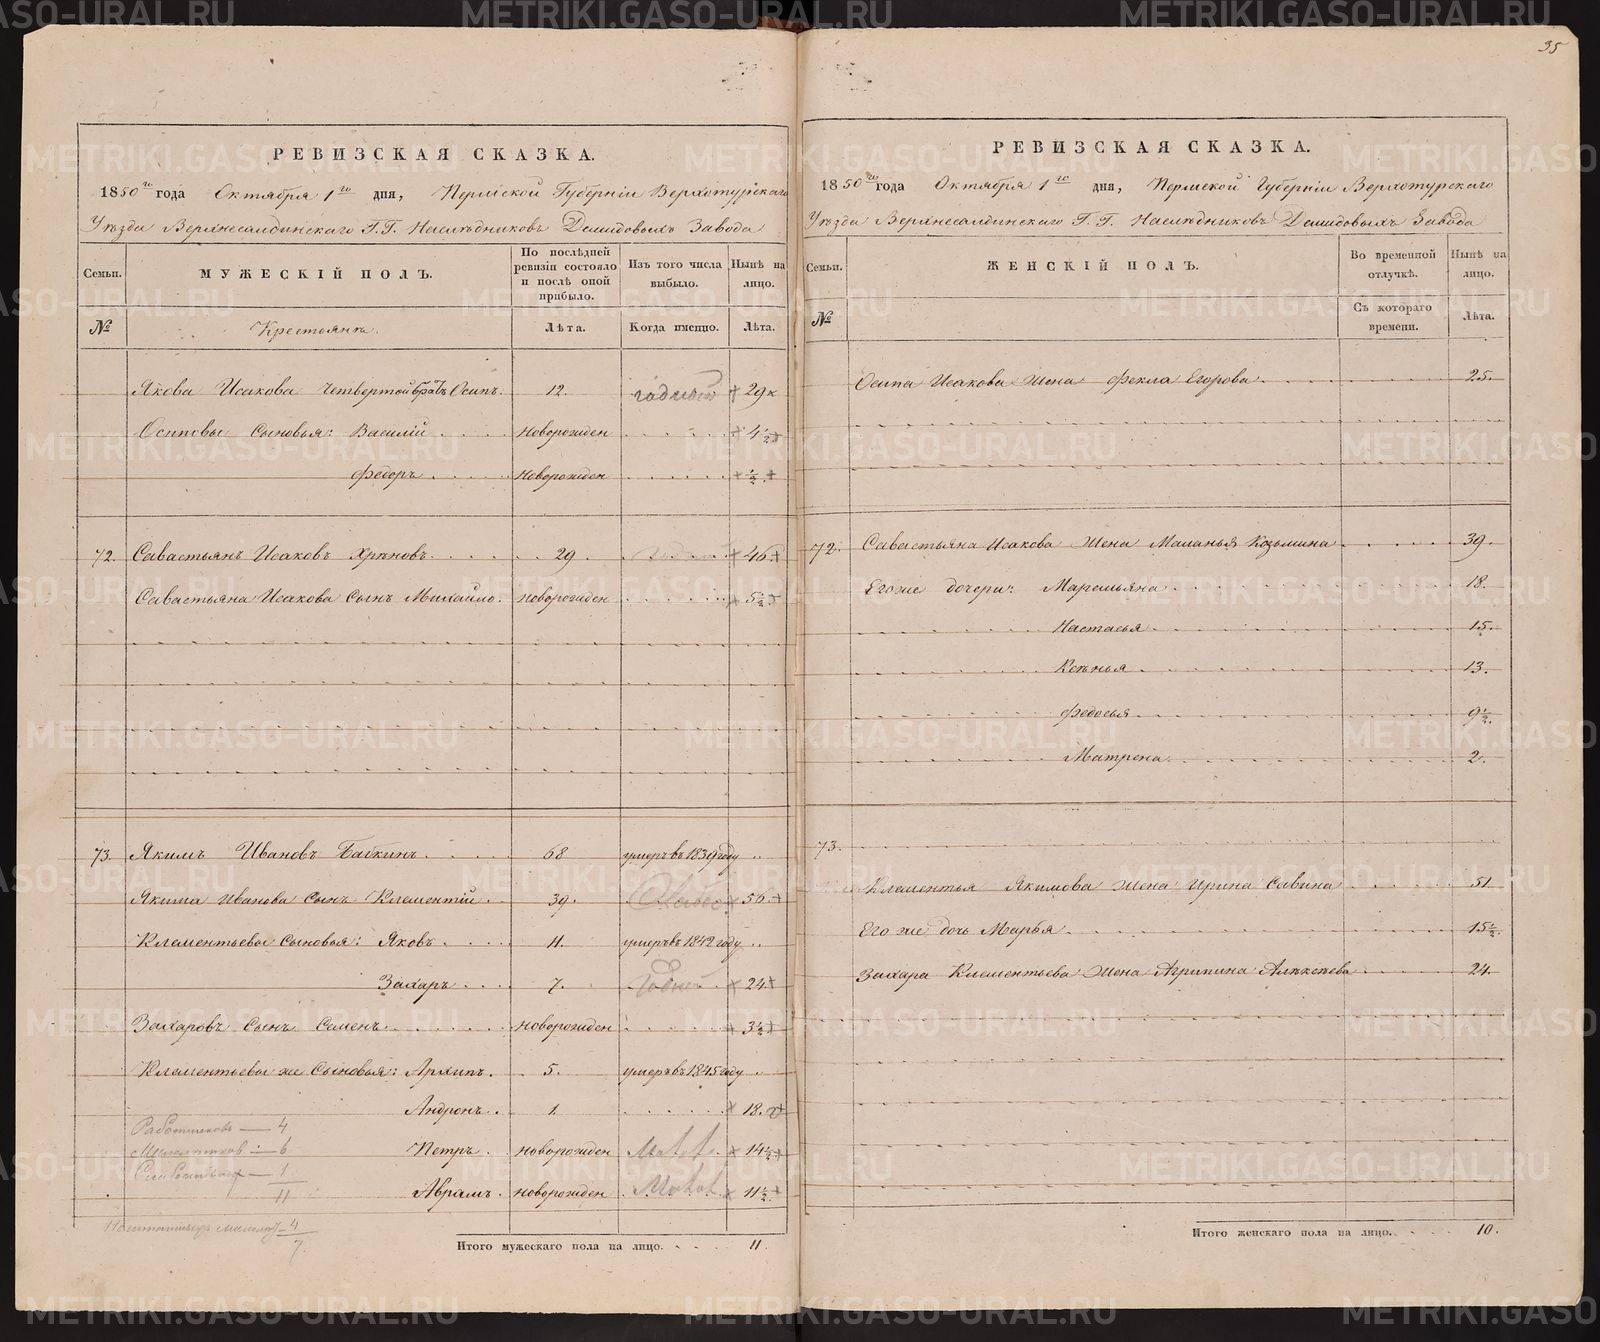 35
РЕВИЗСКАЯ СКАЗКА.
1850го года Октября 1го дня, Пермской Губерніи Верхотурскаго
Уѣзда Верхнесалдинскаго Г.Г. Наслѣдниковъ Демидовыхъ Завода
Семьи. МУЖЕСКІЙ ПОЛЪ. По послѣдней ревизіи состояло и послѣ оной прибыло. Изъ того числа выбыло. Нынѣ на лицо.
№ Крестьянъ. Лѣта. Когда именно. Лѣта.
Якова Исакова четвертой братъ Осипъ. 12. годный 29
Осиповы Сыновья: Василій новорожден 4 1/2
Федоръ новорожден 1/2
72. Савастьянъ Исаковъ Хрѣновъ. 29 46
Савастьяна Исакова Сынъ Михайло. новорожден 5 1/2
73. Якимъ Ивановъ Бабкинъ. 68 умеръ въ 1839 году
Якима Иванова Сынъ Клементій. 39. 56
Клементьевы Сыновья: Яковъ. 11. умеръ въ 1842 году
Захаръ 7. Годный 24
Захаровъ Сынъ Семенъ новорожден 3 1/2
Клементьевы же Сыновья: Архипъ. 5. умеръ въ 1845 году
Андронъ. 1. 18.
Работниковъ — 4
Петръ. новорожден 14 1/2
6
Аврамъ. новорожден 11 1/2
1
11
4
7.
Итого мужескаго пола на лицо. 11.
РЕВИЗСКАЯ СКАЗКА.
1850го года Октября 1го дня, Пермской Губерніи Верхотурскаго
Уѣзда Верхнесалдинскаго Г.Г. Наслѣдниковъ Демидовыхъ Завода
Семьи. ЖЕНСКІЙ ПОЛЪ. Во временной отлучкѣ. Нынѣ на лицо.
№ Съ котораго времени. Лѣта.
Осипа Исакова жена Фекла Егорова 25.
72. Савастьяна Исакова жена Маланья Козьмина 39.
Его же дочери: Маремьяна 18.
Настасья 15.
Ксѣнья 13.
Федосья 9 1/2.
Матрена 2.
73.
Клементья Якимова жена Ирина Савина 51
Его же дочь Марья 15 1/2.
Захара Клементьева жена Агрипина Алѣксѣева 24.
Итого женскаго пола на лицо. 10.
METRIKI.GASO-URAL.RU